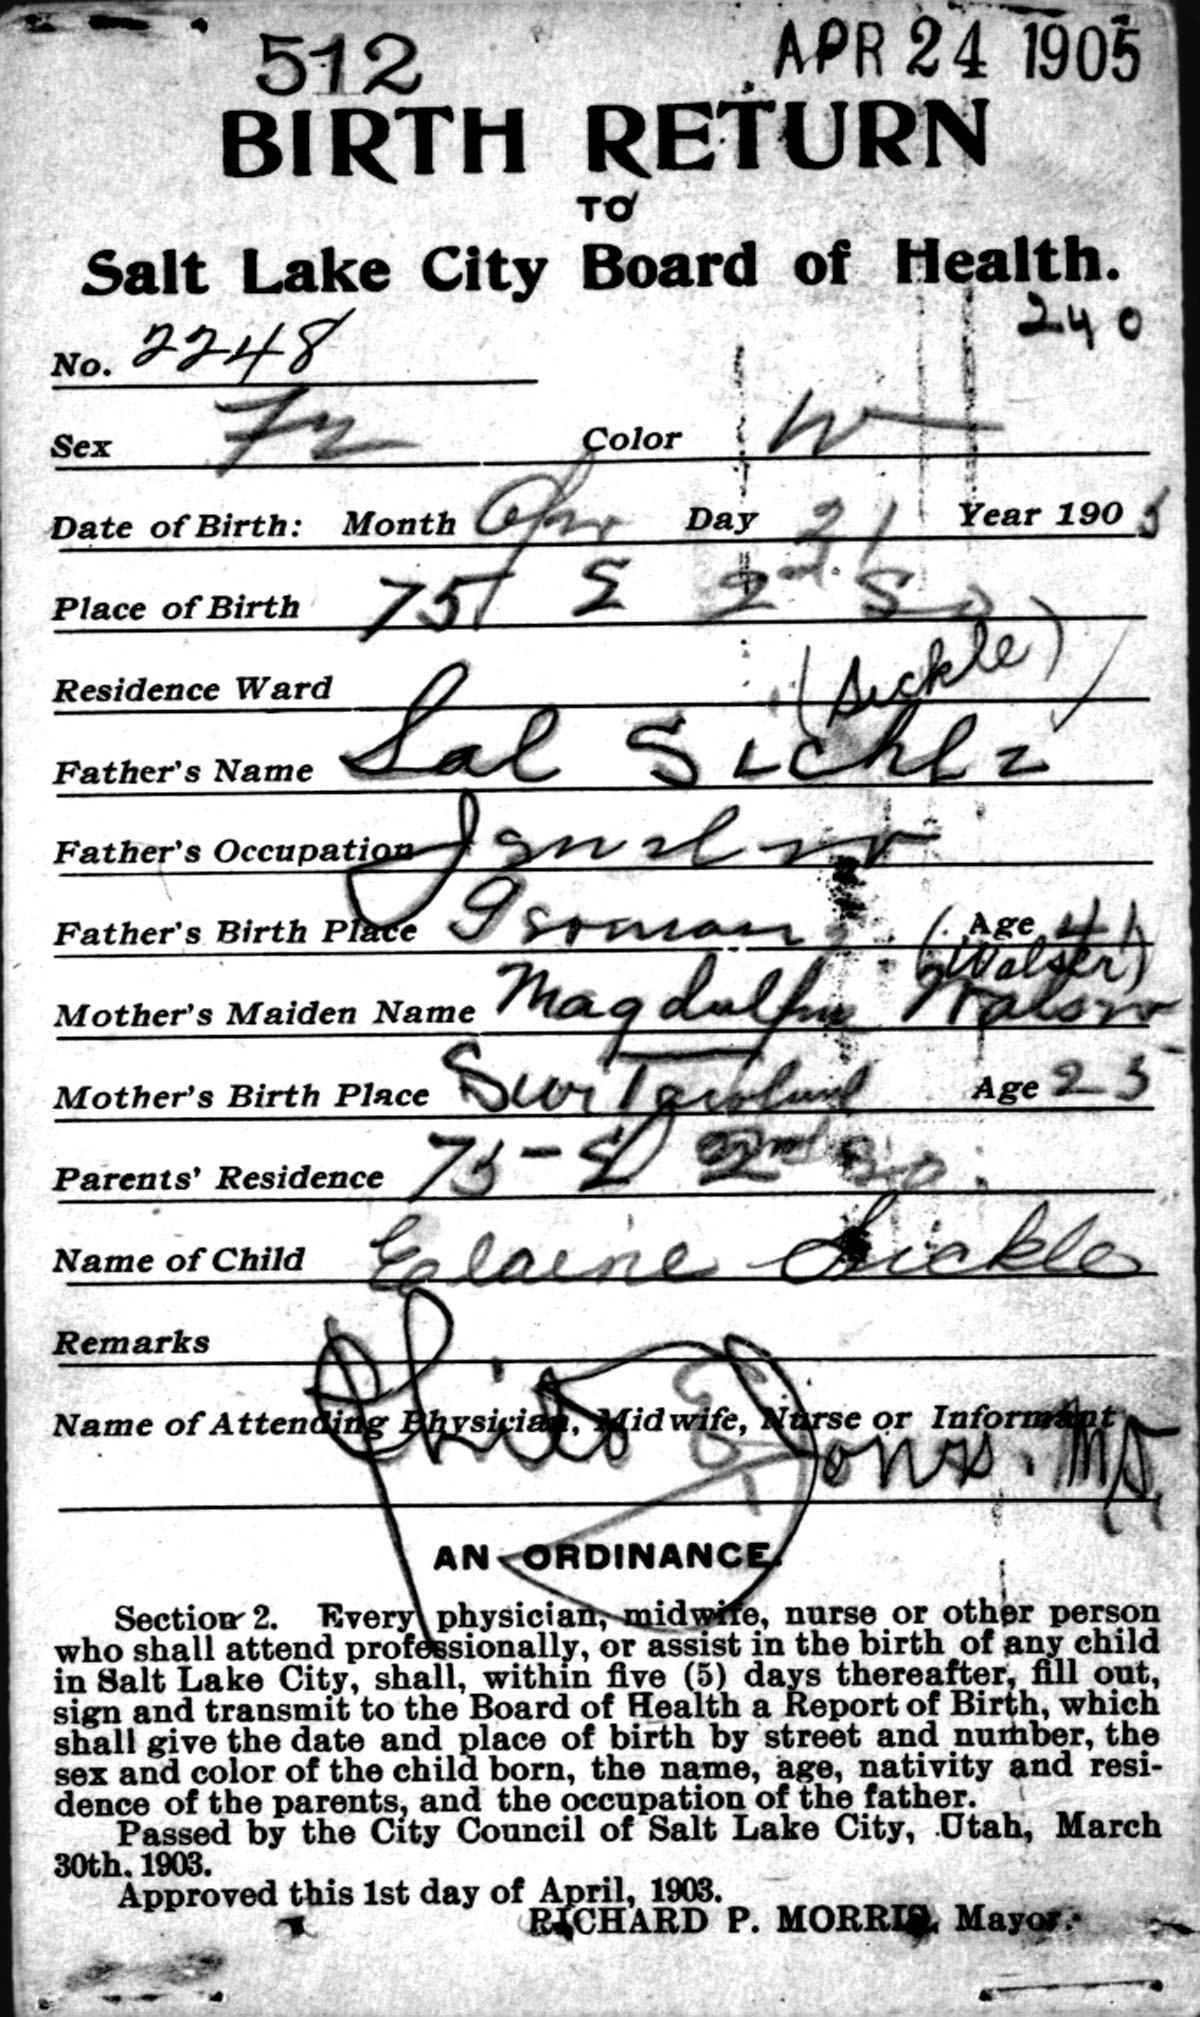 512 APR 24 1905
BIRTH RETURN
TO
Salt Lake City Board of Health.
240
No. 2248
Sex Color W
Date of Birth: Month Apr Day 21 Year 1905
Place of Birth 75 E 2nd So
Residence Ward (Sickle)
Father's Name Sal Sickle
Father's Occupation Jeweler
Father's Birth Place German (Age 41
(Walser)
Mother's Maiden Name Walser
Mother's Birth Place Age 25
Parents' Residence 75 - E 2nd So.
Name of Child Elaine Sickle
Remarks
Name of Attending Physician, Midwife, Nurse or Informant
Jones. MD.
AN ORDINANCE.
Section 2. Every physician, midwife, nurse or other person
who shall attend professionally, or assist in the birth of any child
in Salt Lake City, shall, within five (5) days thereafter, fill out,
sign and transmit to the Board of Health a Report of Birth, which
shall give the date and place of birth by street and number, the
sex and color of the child born, the name, age, nativity and resi-
dence of the parents, and the occupation of the father.
Passed by the City Council of Salt Lake City, Utah, March
30th, 1903.
Approved this 1st day of April, 1903.
RICHARD P. MORRIS, Mayor.